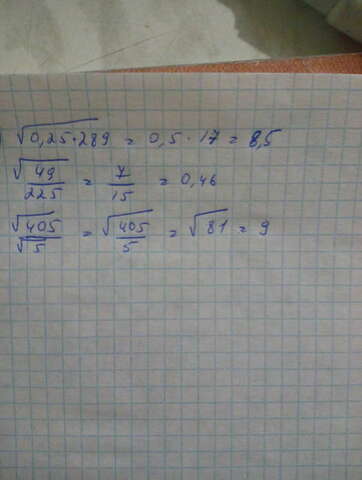 √0,25·289 = 0,5 · 17 = 8,5
√49/225 = 7/15 = 0,46
√405/√5 = √405/5 = √81 = 9